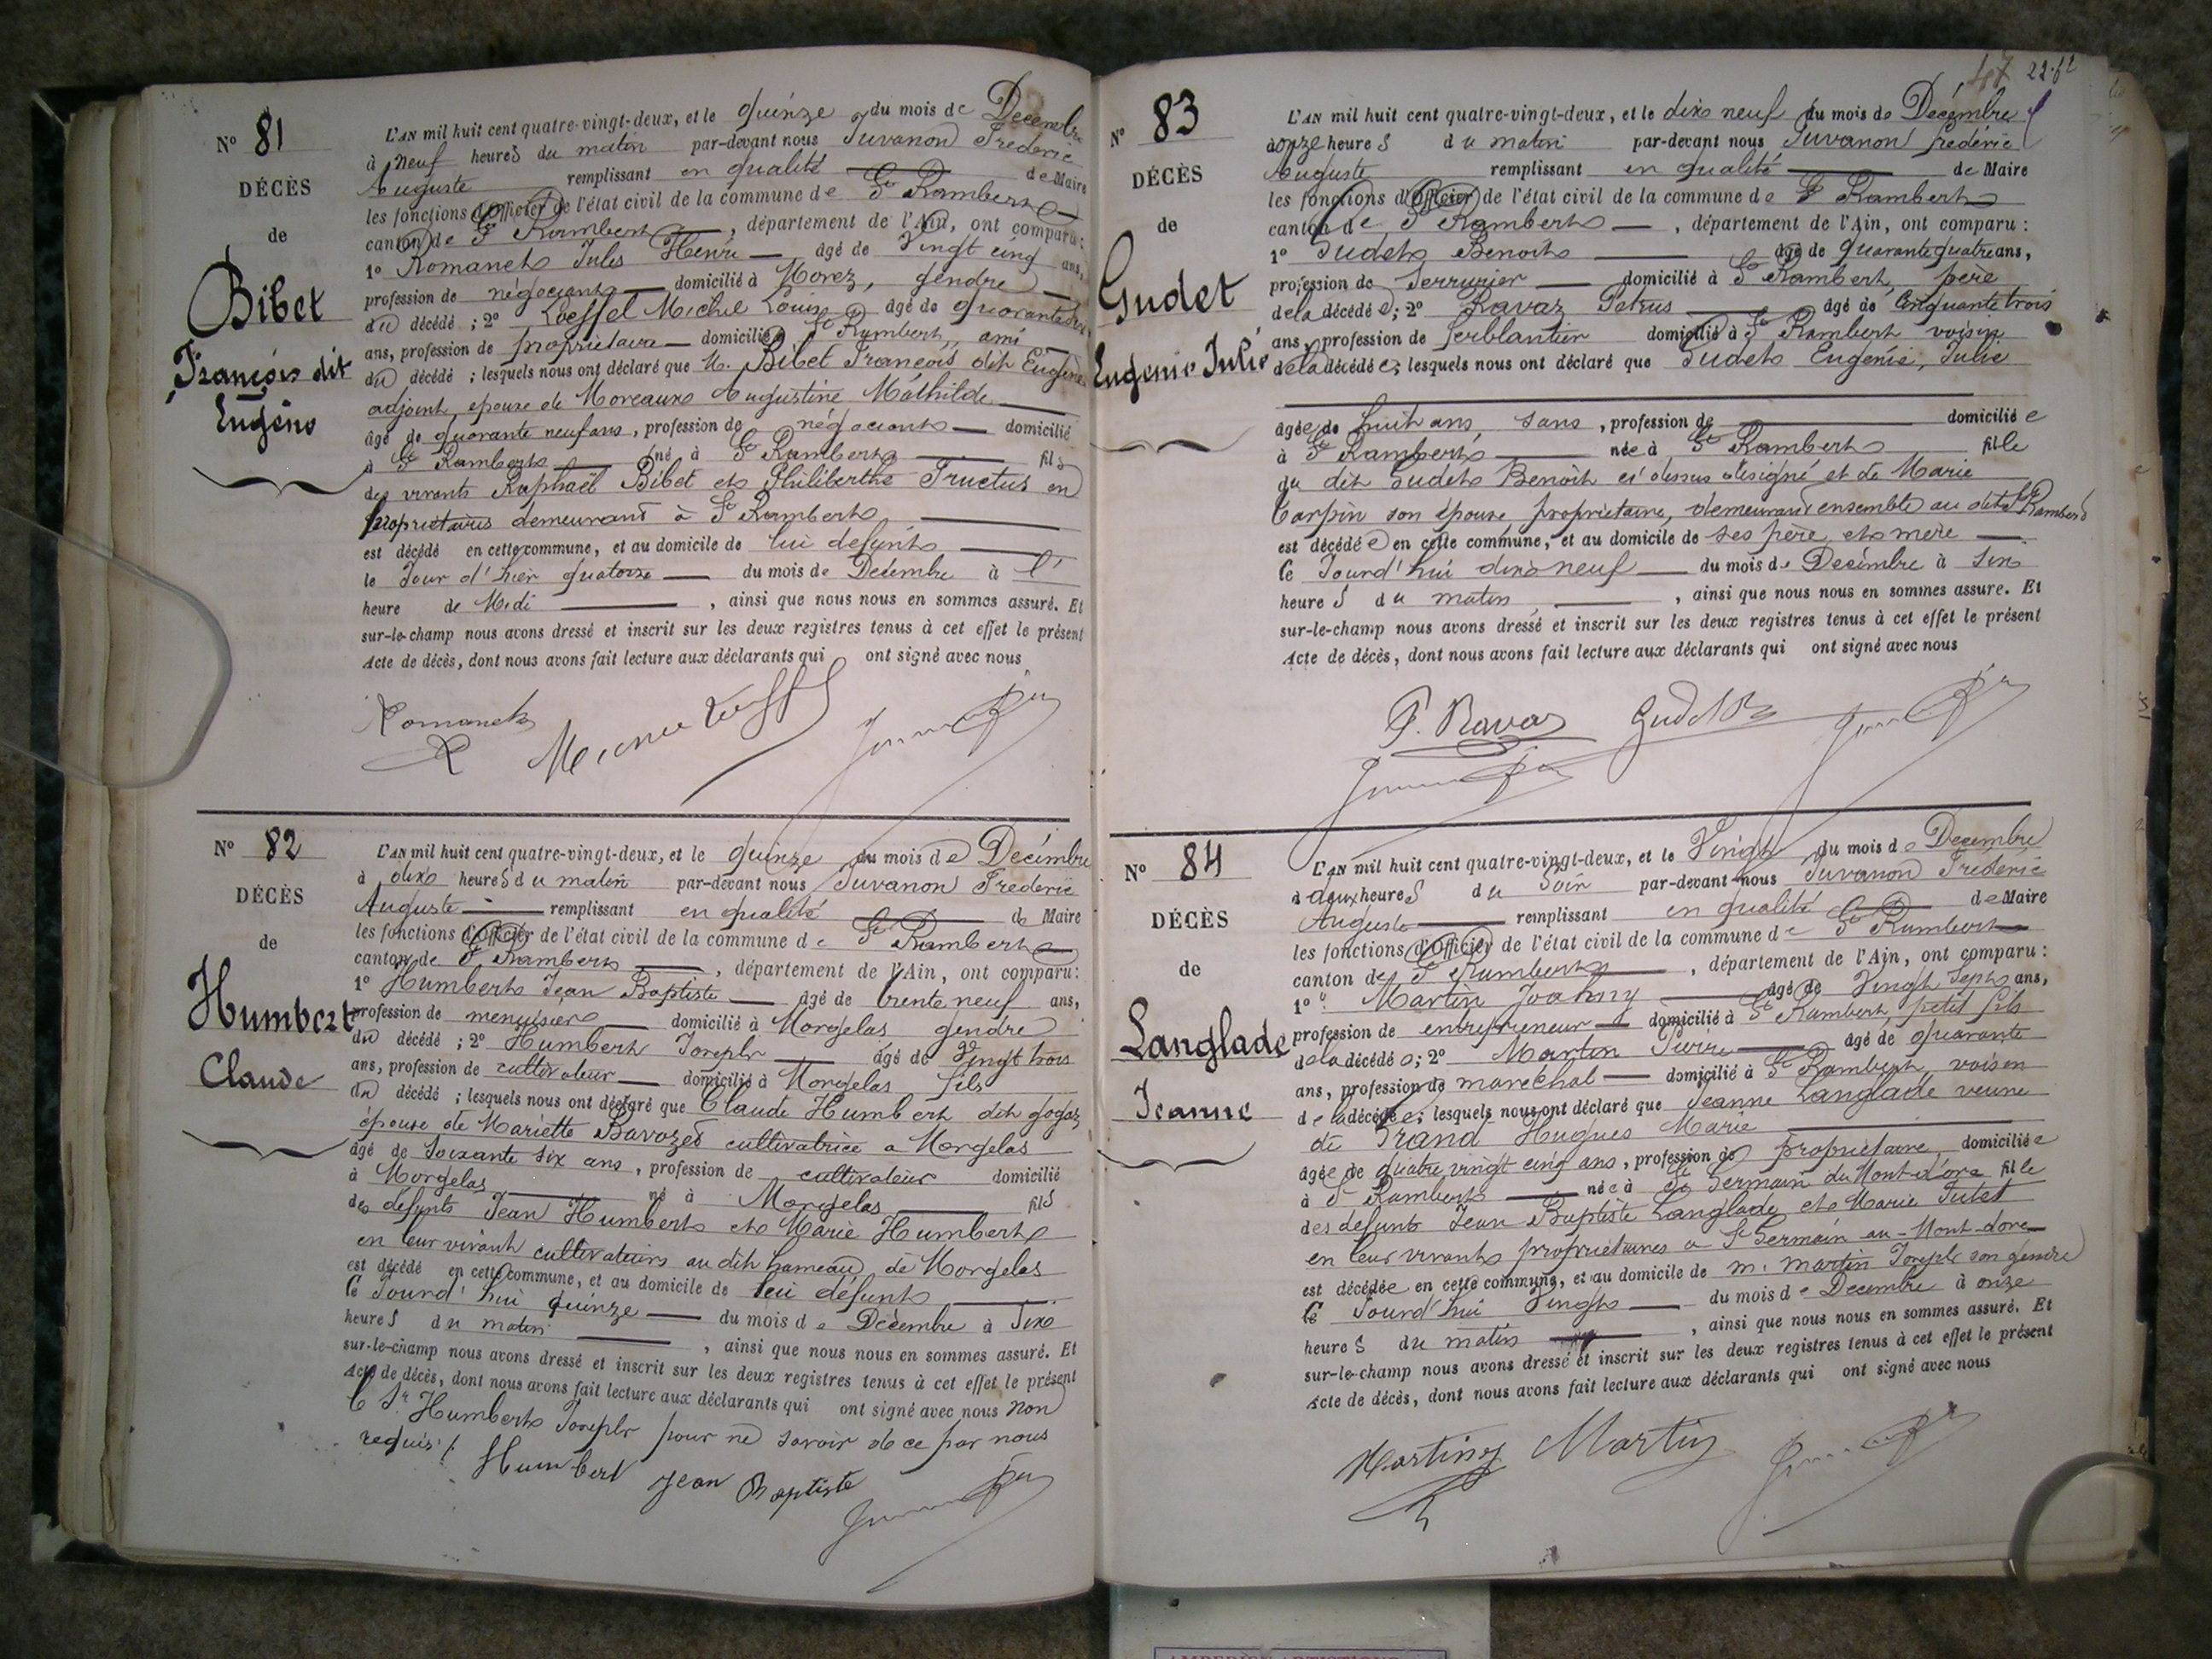 N° 81
DÉCÈS
de
Bibet
François dit
Eugène
L'AN mil huit cent quatre-vingt-deux, et le quinze du mois de Décembre
à neuf heures du matin par-devant nous Juvanon Frédéric
Auguste remplissant en qualité de Maire
les fonctions d'Officier de l'état civil de la commune de St Rambert
canton de St Rambert, département de l'Ain, ont comparu :
1° Romanet Jules Henri âgé de Vingt cinq ans,
profession de négociant domicilié à Morez, gendre
du décédé ; 2° Loeffel Michel Louis âgé de quarante
ans, profession de propriétaire domicilié à St Rambert, ami
du décédé ; lesquels nous ont déclaré que M. Bibet François dit Eugène
adjoint, epoux de Moreaux Augustine Mathilde
âgé de quarante neuf ans, profession de négociant domicilié
à St Rambert né à St Rambert fils
des vivants Raphaël Bibet et Philiberthe Tructus en
propriétaires demeurant à St Rambert
est décédé en cette commune, et au domicile de lui defunt
le Jour d'hier quatorze du mois de Décembre à l'
heure de Midi, ainsi que nous nous en sommes assuré. Et
sur-le-champ nous avons dressé et inscrit sur les deux registres tenus à cet effet le présent
acte de décès, dont nous avons fait lecture aux déclarants qui ont signé avec nous
Romanet
N° 82
DÉCÈS
de
Humbert
Claude
L'AN mil huit cent quatre-vingt-deux, et le quinze du mois de Decémbre
à dix heures du matin par-devant nous Juvanon Frederic
Auguste remplissant en qualité de Maire
les fonctions d'Officier de l'état civil de la commune de St Rambert
canton de St Rambert, département de l'Ain, ont comparu :
1° Humbert Jean Baptiste âgé de trente neuf ans,
profession de menuisier domicilié à Morgelas gendre
du décédé ; 2° Humbert Joseph âgé de Vingt trois
ans, profession de cultivateur domicilié à Morgelas fils
du décédé ; lesquels nous ont déclaré que Claude Humbert dit gogaz
épouse de Mariette Bavozet cultivatrice a Morgelas
âgé de Soixante six ans, profession de cultivateur domicilié
à Morgelas né à Morgelas fils
des défunts Jean Humbert et Marie Humbert
en leur vivant cultivateurs au dit hameau de Morgelas
est décédé en cette commune, et au domicile de lui défunt
le Jourd'hui quinze du mois de Décembre à Six
heures du matin, ainsi que nous nous en sommes assuré. Et
sur-le-champ nous avons dressé et inscrit sur les deux registres tenus à cet effet le présent
acte de décès, dont nous avons fait lecture aux déclarants qui ont signé avec nous non
le Sr Humbert Joseph pour ne savoir de ce par nous
requis /.
Humbert Jean Baptiste
47 22.
N° 83
DÉCÈS
de
Gudet
Eugenie Julie
L'AN mil huit cent quatre-vingt-deux, et le dix neuf du mois de Decémbre
à onze heures du matin par-devant nous Juvanon frédéric
Auguste remplissant en qualité de Maire
les fonctions d'Officier de l'état civil de la commune de St Rambert
canton de St Rambert, département de l'Ain, ont comparu :
1° Gudet Benoit âgé de quarante quatre ans,
profession de Serrurier domicilié à St Rambert, père
de la décédée ; 2° Ravaz Petrus âgé de Cinquante trois
ans, profession de ferblantier domicilié à St Rambert voisin
de la décédée ; lesquels nous ont déclaré que Gudet Eugenie, Julie
âgée de huit ans sans, profession de domiciliée
à St Rambert née à St Rambert fille
du dit Gudet Benoit ci dessus designé et de Marie
Carpin son épouse propriétaire, demeurant ensemble au dit St Rambert
est décédée en cette commune, et au domicile de ses père et mère
le Jourd'hui dix neuf du mois de Decémbre à Six
heures du matin, ainsi que nous nous en sommes assuré. Et
sur-le-champ nous avons dressé et inscrit sur les deux registres tenus à cet effet le présent
acte de décès, dont nous avons fait lecture aux déclarants qui ont signé avec nous
P. Ravaz Gudet B
N° 84
DÉCÈS
de
Langlade
Jeanne
L'AN mil huit cent quatre-vingt-deux, et le Vingt du mois de Decembre
à deux heures du Soir par-devant nous Juvanon Fréderic
Auguste remplissant en qualité de Maire
les fonctions d'Officier de l'état civil de la commune de St Rambert
canton de St Rambert, département de l'Ain, ont comparu :
1° Martin Joahny âgé de Vingt Sept ans,
profession de entrepreneur domicilié à St Rambert, petit fils
de la décédée ; 2° Martin Pierre âgé de quarante
ans, profession de maréchal domicilié à St Rambert, voisin
de la décédée ; lesquels nous ont déclaré que Jeanne Langlade veuve
de Grand Hugues Marie
âgée de quatre vingt cinq ans, profession de propriétaire domiciliée
à St Rambert née à St Germain du Mont d'ore fille
des defunts Jean Baptiste Langlade et Marie Tutet
en leur vivants propriétaires a St Germain au-Mont-dore
est décédée en cette commune, et au domicile de m. martin Joseph son gendre
le Jourd'hui Vingt du mois de Decembre à onze
heures du matin, ainsi que nous nous en sommes assuré. Et
sur-le-champ nous avons dressé et inscrit sur les deux registres tenus à cet effet le présent
acte de décès, dont nous avons fait lecture aux déclarants qui ont signé avec nous
Martin J Martin